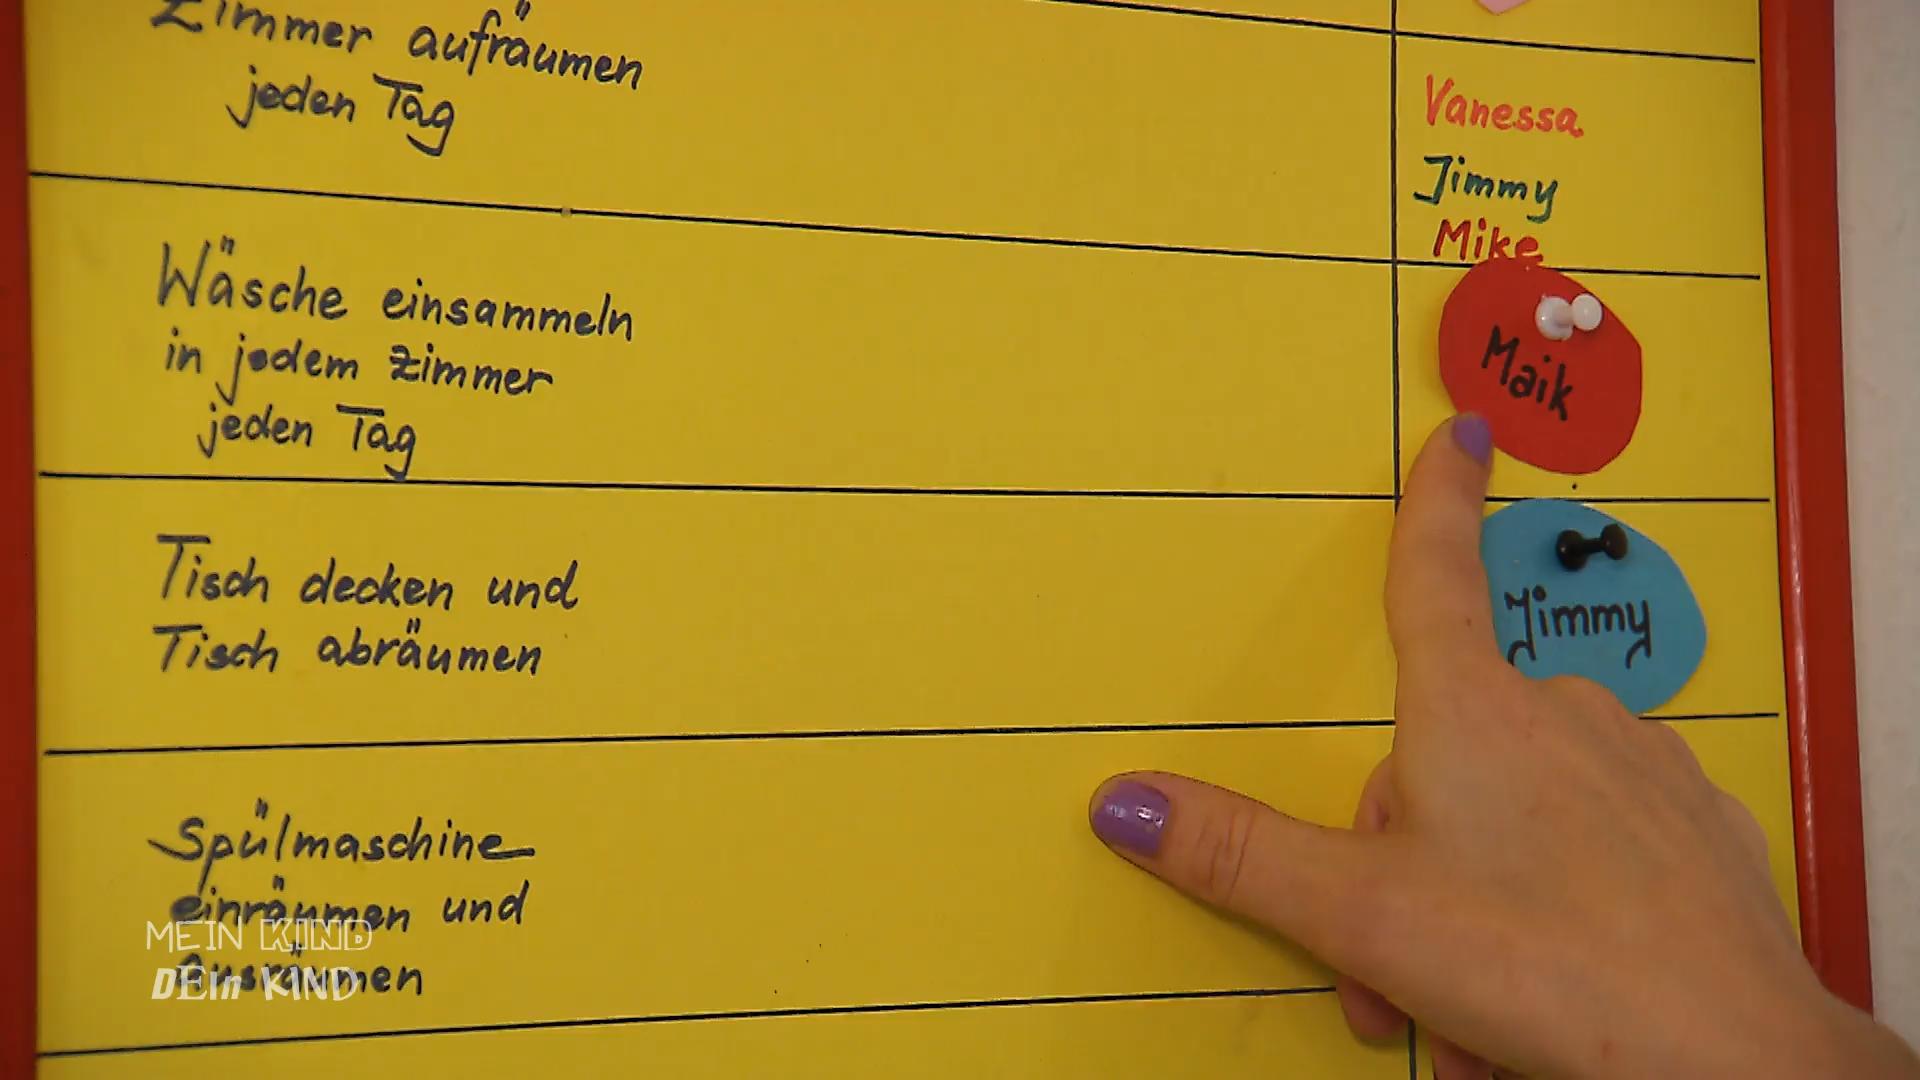 Zimmer aufräumen
jeden Tag
Vanessa
Jimmy
Mike
Wäsche einsammeln
in jedem Zimmer
jeden Tag
Maik
Tisch decken und
Tisch abräumen
Jimmy
Spülmaschine
einräumen und
Ausräumen
MEIN KIND
DEIn KIND